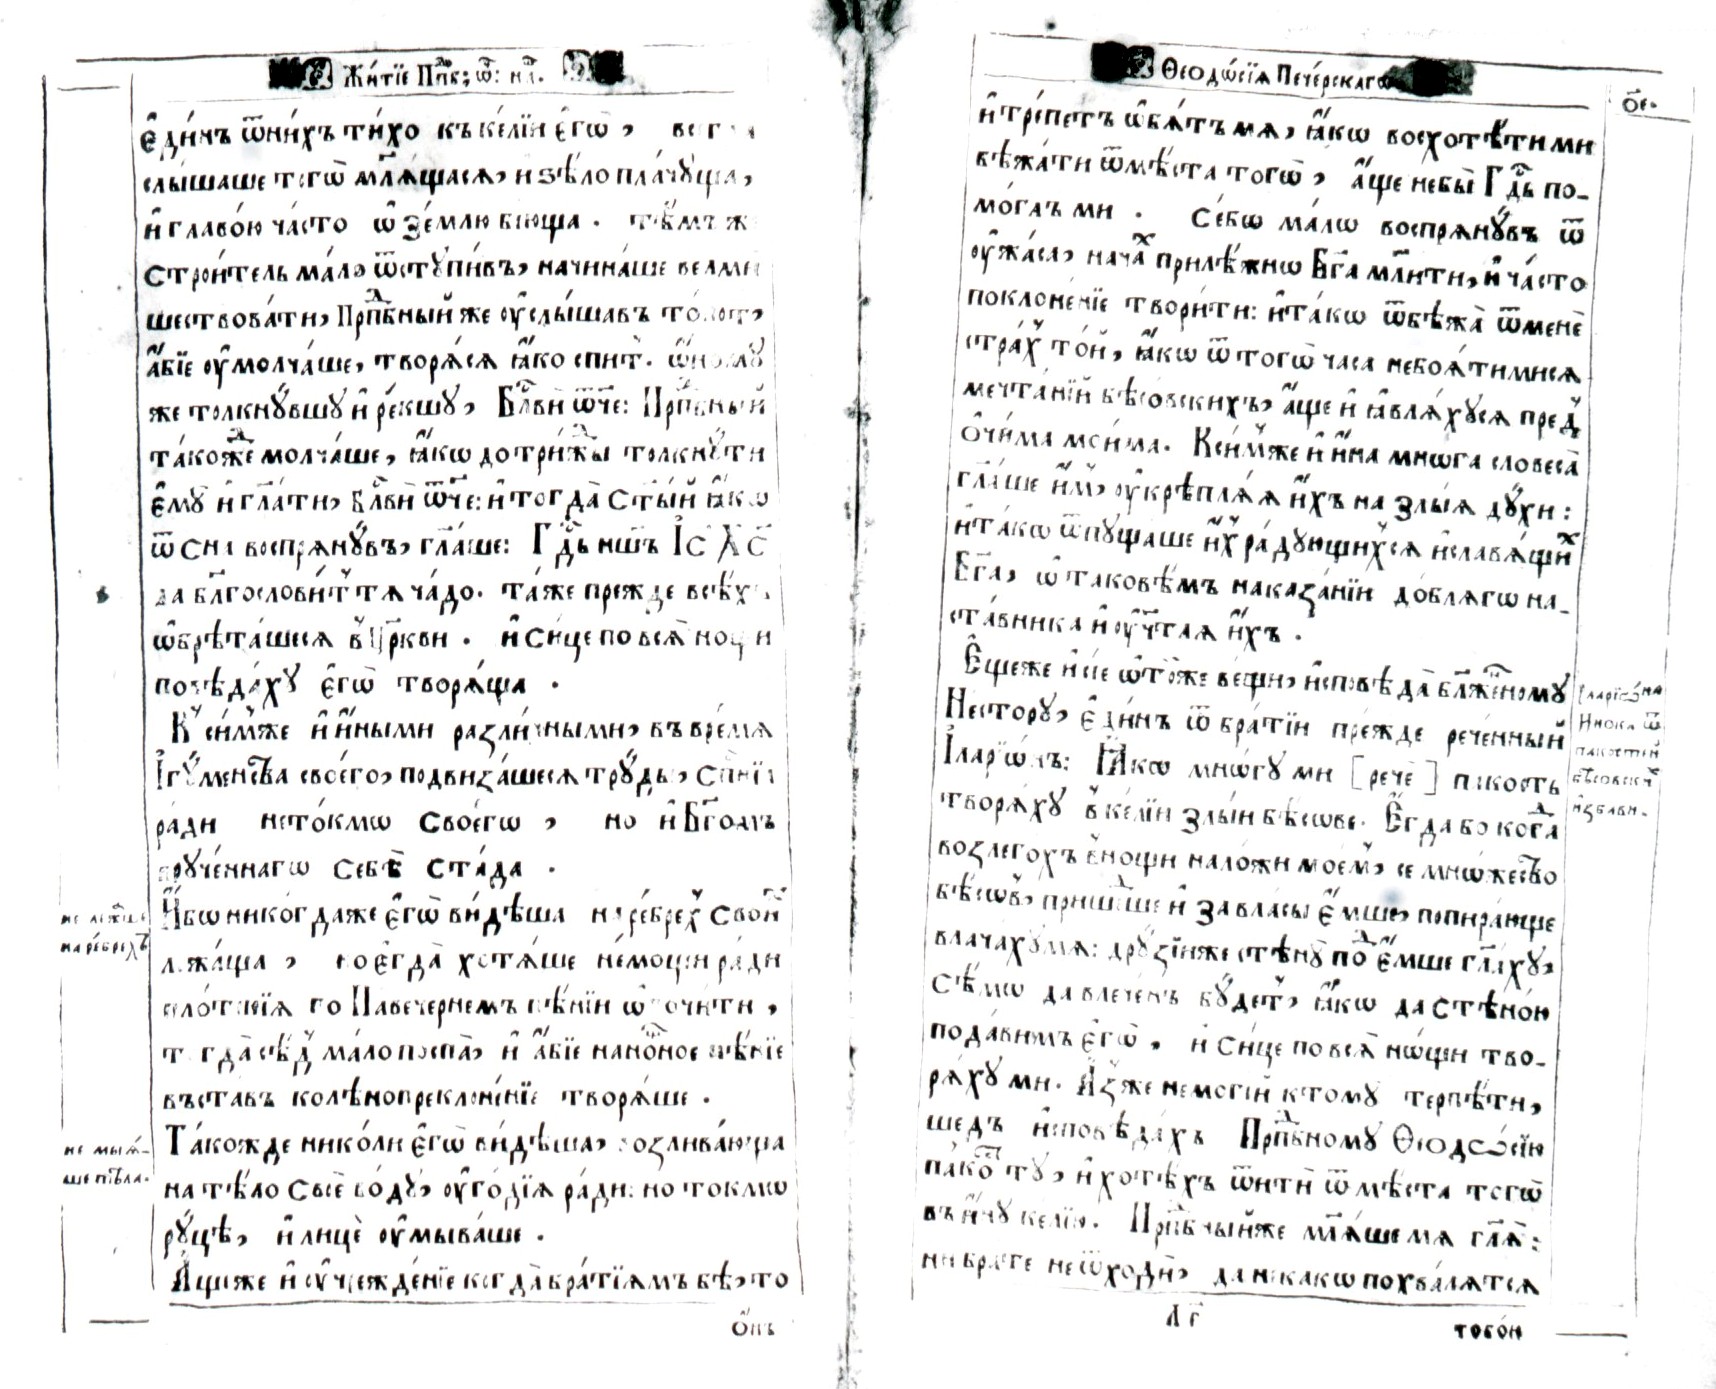 Жи́тїе Прп͡б; ѿ: на́.
є҆ди́нъ ѿни́хъ ти́хо къ ке́лїи є҆гѡ̀,
слы́шаше тогѡ̀ млѧ́щасѧ, и ѕѣ́ло пла́чуща,
и҆ главо́ю ча́сто ѡ҆ зе́млю бїюща. тѣ́мъ ж
строи́тель ма́ло ѿступи́въ, начина́ше велми
шествова́ти, Прпⷣбный же оу҆слы́шавъ то́пот,
а҆́бїе оу҆молча́ше, творѧ́сѧ ꙗ҆́ко спи́т. ѡ҆́ному
же толкну́вшу и҆ ре́кшу, Блг҇ви̑ ѿче: Прпⷣбный
та́кожⷣе молча́ше, ꙗ҆́кѡ до три́жⷣы толкну́ти
є҆му̀ и҆ гл҃а́ти, бл҃ви̑ ѿч҃е: и҆ тогда̀ ст҃ы́й ꙗ҆́кѡ
ѿ сна воспрѧну́въ, гл҃аше: Гдⷭ҇ь нш҃ъ І҆с Хс
да блг҃ослови́т тѧ ча́до. та́же пре́жде всѣ́х
ѡ҆брѣта́шесѧ в Цр҃кви. и҆ си́це по всѧ̀ нощи
повѣ́даху є҆гѡ̀ творѧ́ща.
К си́мже и҆ и҆́ными разли́чными, въ вре́мѧ
І҆гу́менства своего̀, подвиза́шесѧ труды̀, Сп҃нїѧ
ра́ди нето́кмѡ своегѡ̀, но и҆ Бг҃омъ
вруче́ннагѡ себѣ̀ ста́да.
И҆́бѡ никогдаже є҆гѡ̀ ви́дѣша на ре́брех свои́х
лежа́ща, но є҆гда̀ хотѧ́ше не́мощи ра́ди
плотскїѧ по Павечернемъ пѣ́нїи ѡ҆почи́ти,
тогда̀ сѣ́д ма́ло поспа̀, и҆ а҆́бїе на но́щное пѣ́нїе
въставъ колѣнопреклоне́нїе творѧ́ше.
Та́кожде нико́ли є҆гѡ̀ ви́дѣша, возлива́юща
на тѣ́ло своѐ во́ду, оу҆го́дїѧ ра́ди: но токмѡ
ру́цѣ, и҆ лицѐ оу҆мыва́ше.
А҆́щеже и҆ оу҆чрежде́нїе когда̀ бра́тїѧмъ бѣ̀, то
не лежа́ше
на ре́брехъ
не мыѧ́-
ше тѣла.
ѻ҆́нъ
Ѳеодѡ́сїѧ Пече́рскагѡ
о҃е.
и҆ тре́петъ ѡ҆бѧ́тъ мѧ, ꙗ҆́кѡ восхотѣ́ти ми
бѣжа́ти ѿ мѣ́ста тогѡ̀, а҆́ще небы̀ Гдⷭ҇ь по-
мо́галъ ми. Се́бѡ ма́лѡ воспрѧну́въ ѿ
оу҆́жаса, нача́х прилѣ́жнѡ Бг҃а мл҃ити, и҆ ча́сто
поклоне́нїе твори́ти: и҆ та́кѡ ѿбѣжа̀ ѿ менѐ
стра́х то́й, ꙗ҆́кѡ ѿ тогѡ̀ часа небоѧ́тимисѧ
мечта́нїй бѣсовскихъ, а҆́ще и҆ ꙗ҆влѧ́хусѧ пред
ѻ҆чи́ма мои́ма. К си́мже и҆ и҆́на мнѡга словеса̀
гл҃аше и҆́м, оу҆крѣплѧ́ѧ и҆́хъ на злы́ѧ ду́хи:
и҆ та́кѡ ѿпуща́ше и҆́х ра́дующихсѧ и҆ славѧ́щих
Бг҃а, ѡ҆ таковѣ́мъ наказа́нїи до́блѧгѡ на-
ста́вника и҆ оу҆чт҃лѧ и҆́хъ.
Є҆щеже и҆ сїе ѡ҆ то́йже ве́щи, и҆сповѣ́да блж҃е́нному
Нестору, є҆ди́нъ ѿ бра́тїи пре́жде рече́нный
І҆ларїѡ́нъ: Ꙗ҆́кѡ мнѡ́гу ми [речѐ] па́кость
творѧ́ху в ке́лїи злы́и бѣ́сове. Є҆гда бо когⷣа
возлегохъ в нощи на ло́жи моем, се мно́жество
бѣ́сов, прише́дше и҆ за власы̀ є҆́мше, попира́юще
влача́ху мѧ: дру́зїиже стѣну̀ поⷣ є҆́мше гл҃аху,
сѣ́мѡ да влече́нъ бу́дет, ꙗ҆́кѡ да стѣно́ю
пода́вимъ є҆гѡ̀. и҆ си́це по всѧ̀ но́щи тво-
рѧ́ху ми. А҆́зже немоги́й ктому терпѣ́ти,
шедъ и҆сповѣ́дахъ Прпⷣбному Ѳеодѡ́сїю
па́костⷭ҇ту, и҆ хотѣ́хъ ѿити̑ ѿ мѣ́ста тогѡ̀
въ и҆́ну ке́лїю. Прпⷣбныйже мл҃ѧ́ше мѧ гл҃ѧ:
ни брате неѿходи̑, да никакѡ похва́лѧтсѧ
І҆ларїѡ́на
И҆нока ѿ
пакостей
бѣсовских
и҆збави.
л г҃
тобо́ю